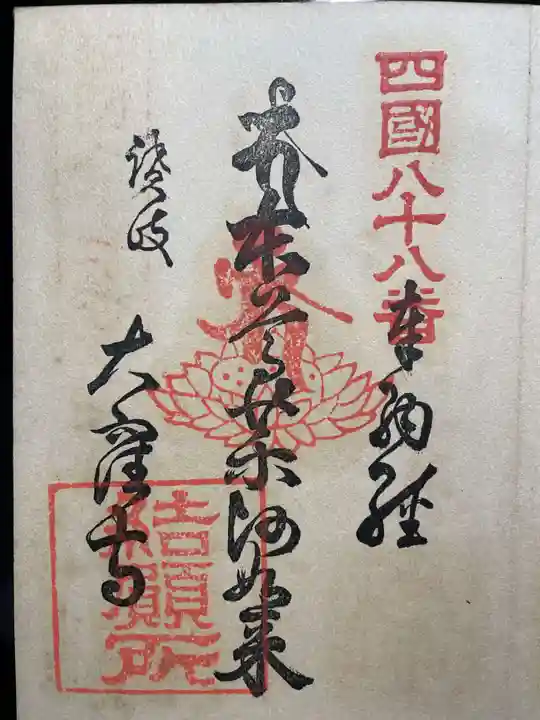 四國八十八番
奉納経
本尊薬師如来
讃岐
大窪寺
結願所